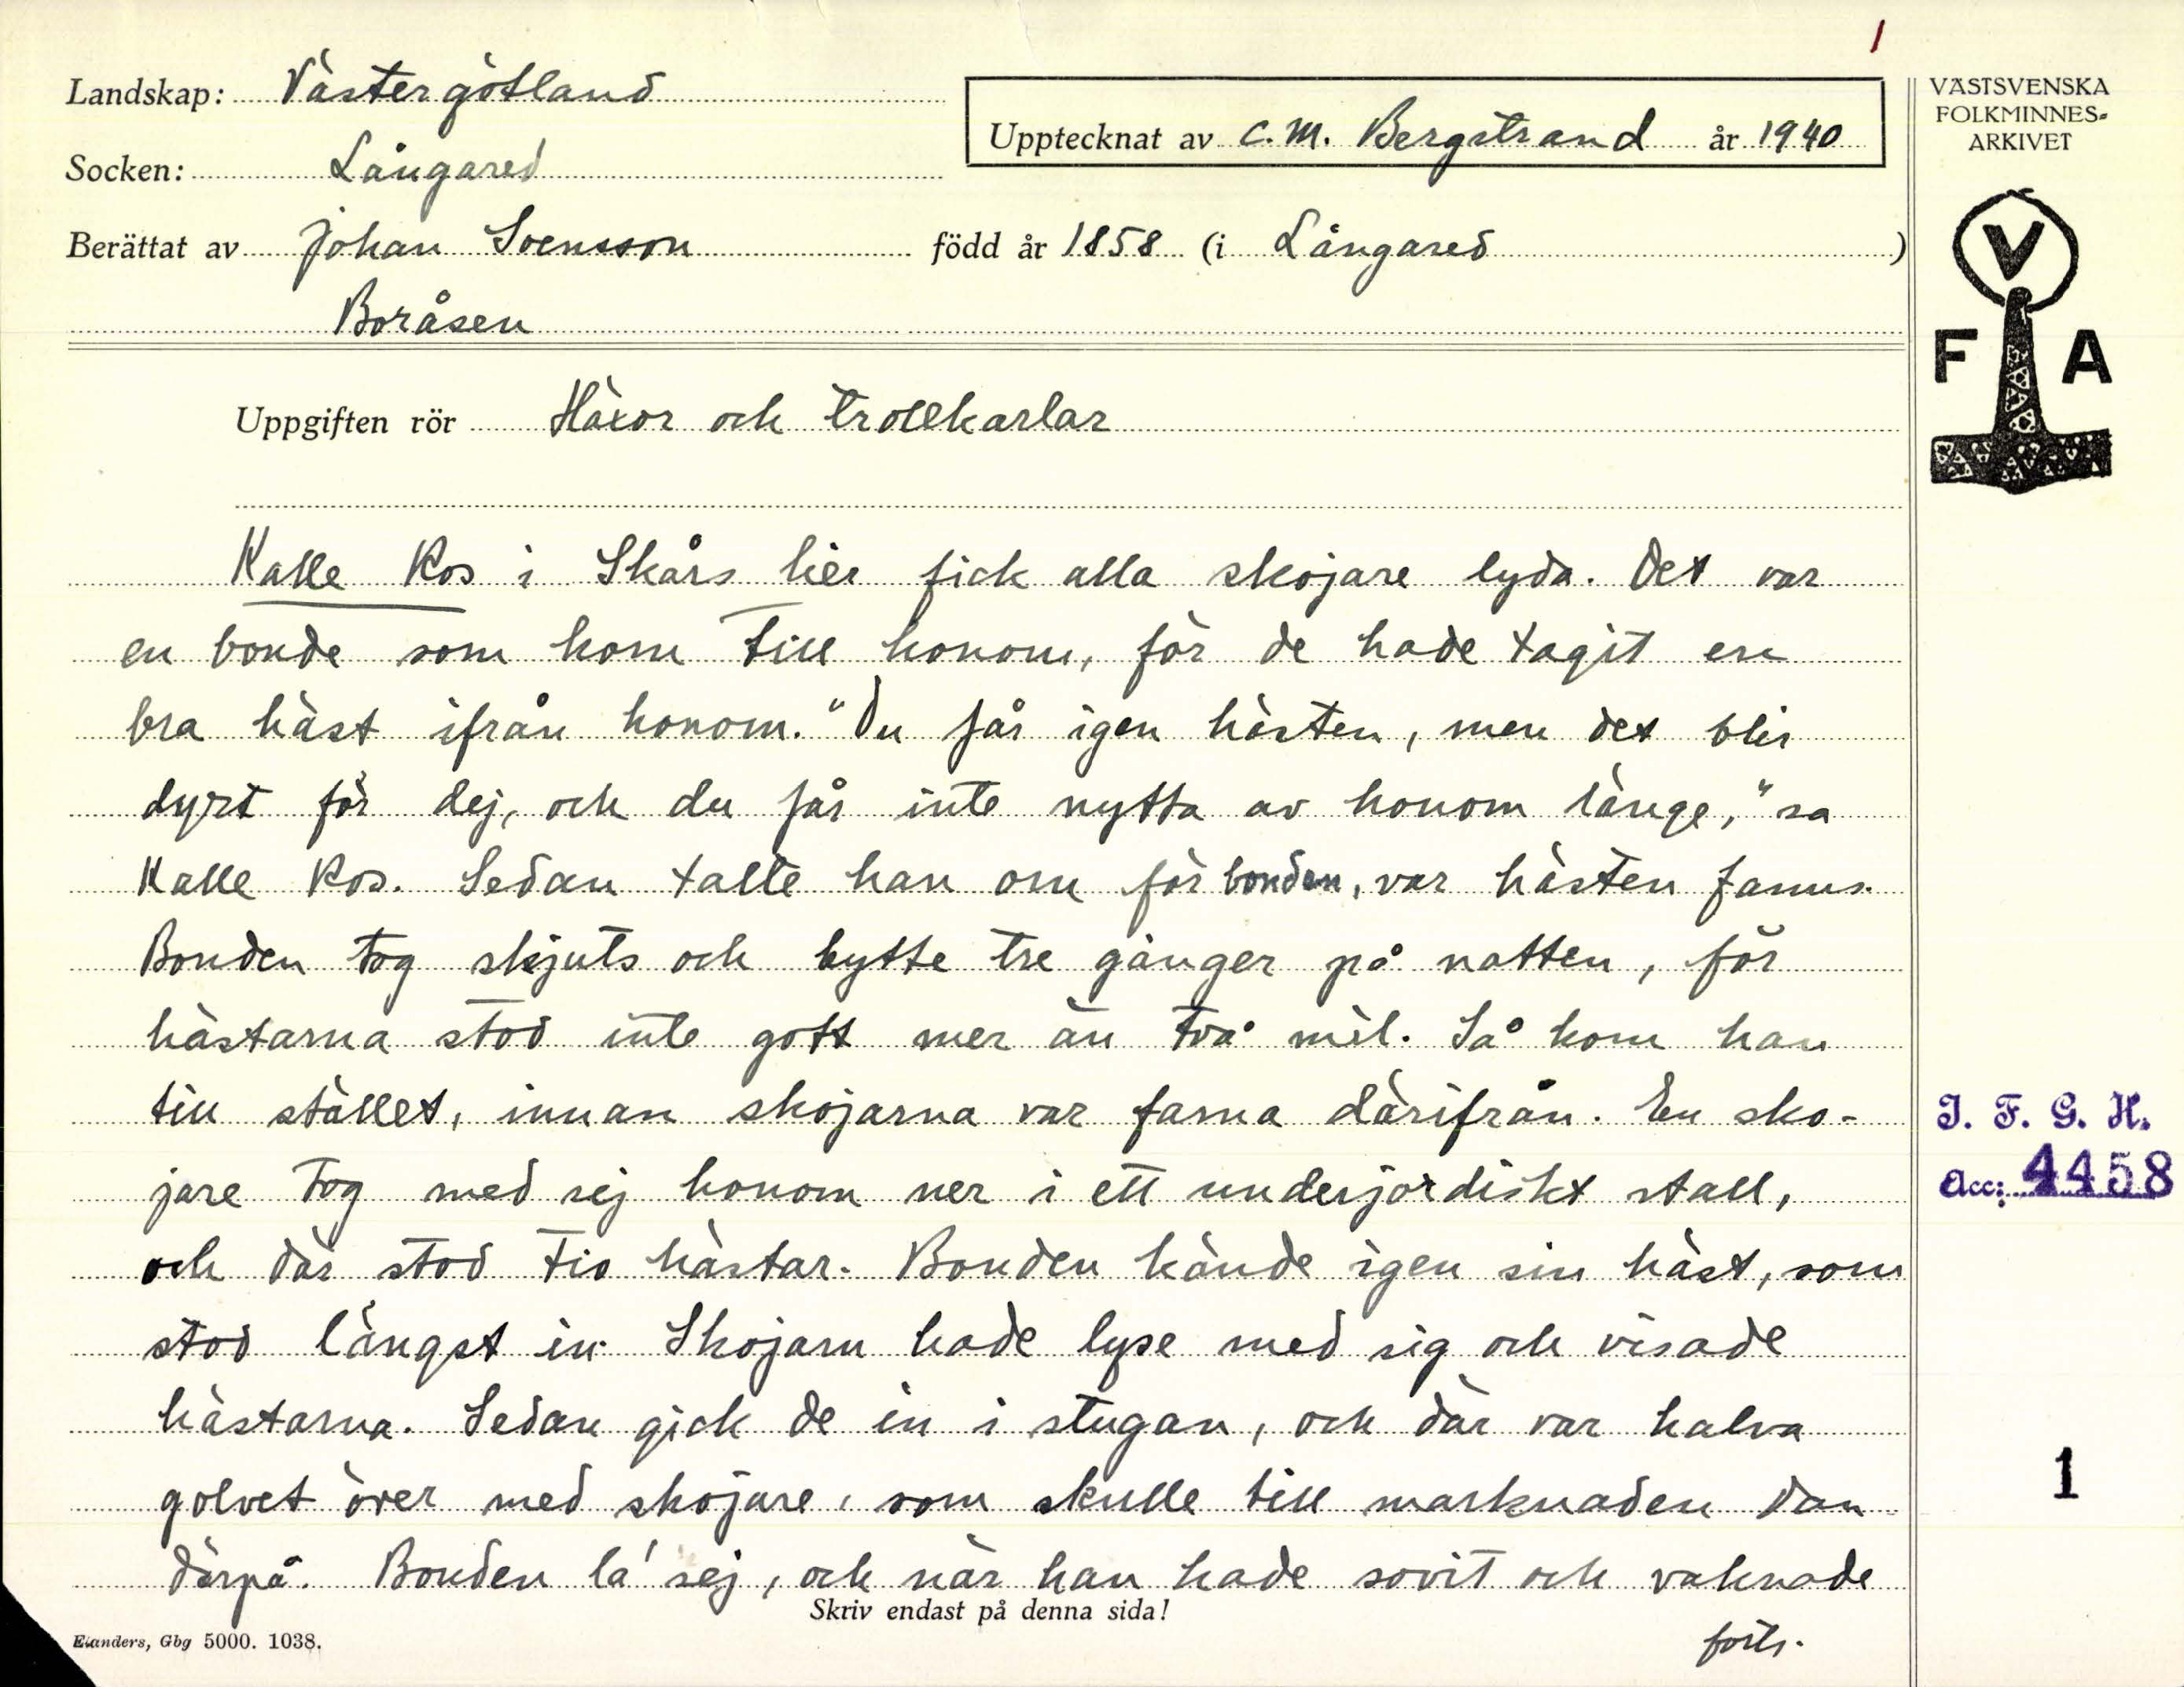 1
Landskap: Västergötland
Upptecknat av C.M. Bergstrand år 1940
VÄSTSVENSKA
FOLKMINNES=
ARKIVET
Socken: Långared
Berättat av Johan Svensson född år 1858 (i Långared)
Boråsen
V
F A
Uppgiften rör Häxor och trollkarlar
Kalle Ros i Skårs lier fick alla skojare lyda. Det var
en bonde som kom till honom, för de hade tagit en
bra häst ifrån honom. "Du får igen hästen, men det blir
dyrt för dej, och du får inte nytta av honom länge," sa
Kalle Ros. Sedan talte han om för bonden, var hästen fanns.
Bonden tog skjuts och bytte tre gånger på natten, för
hästarna stod inte gott mer än två mil. Så kom han
till stället, innan skojarna var farna därifrån. En sko-
jare tog med sej honom ner i ett underjordiskt stall,
och där stod tio hästar. Bonden kände igen sin häst, som
stod längst in. Skojarn hade lyse med sig och visade
hästarna. Sedan gick de in i stugan, och där var halva
golvet över med skojare, som skulle till marknaden dan
därpå. Bonden la' sej, och när han hade sovit och vaknade
J. F. G. H.
Acc: 4458
1
Skriv endast på denna sida!
forts.
Elanders, Gbg 5000. 1038.